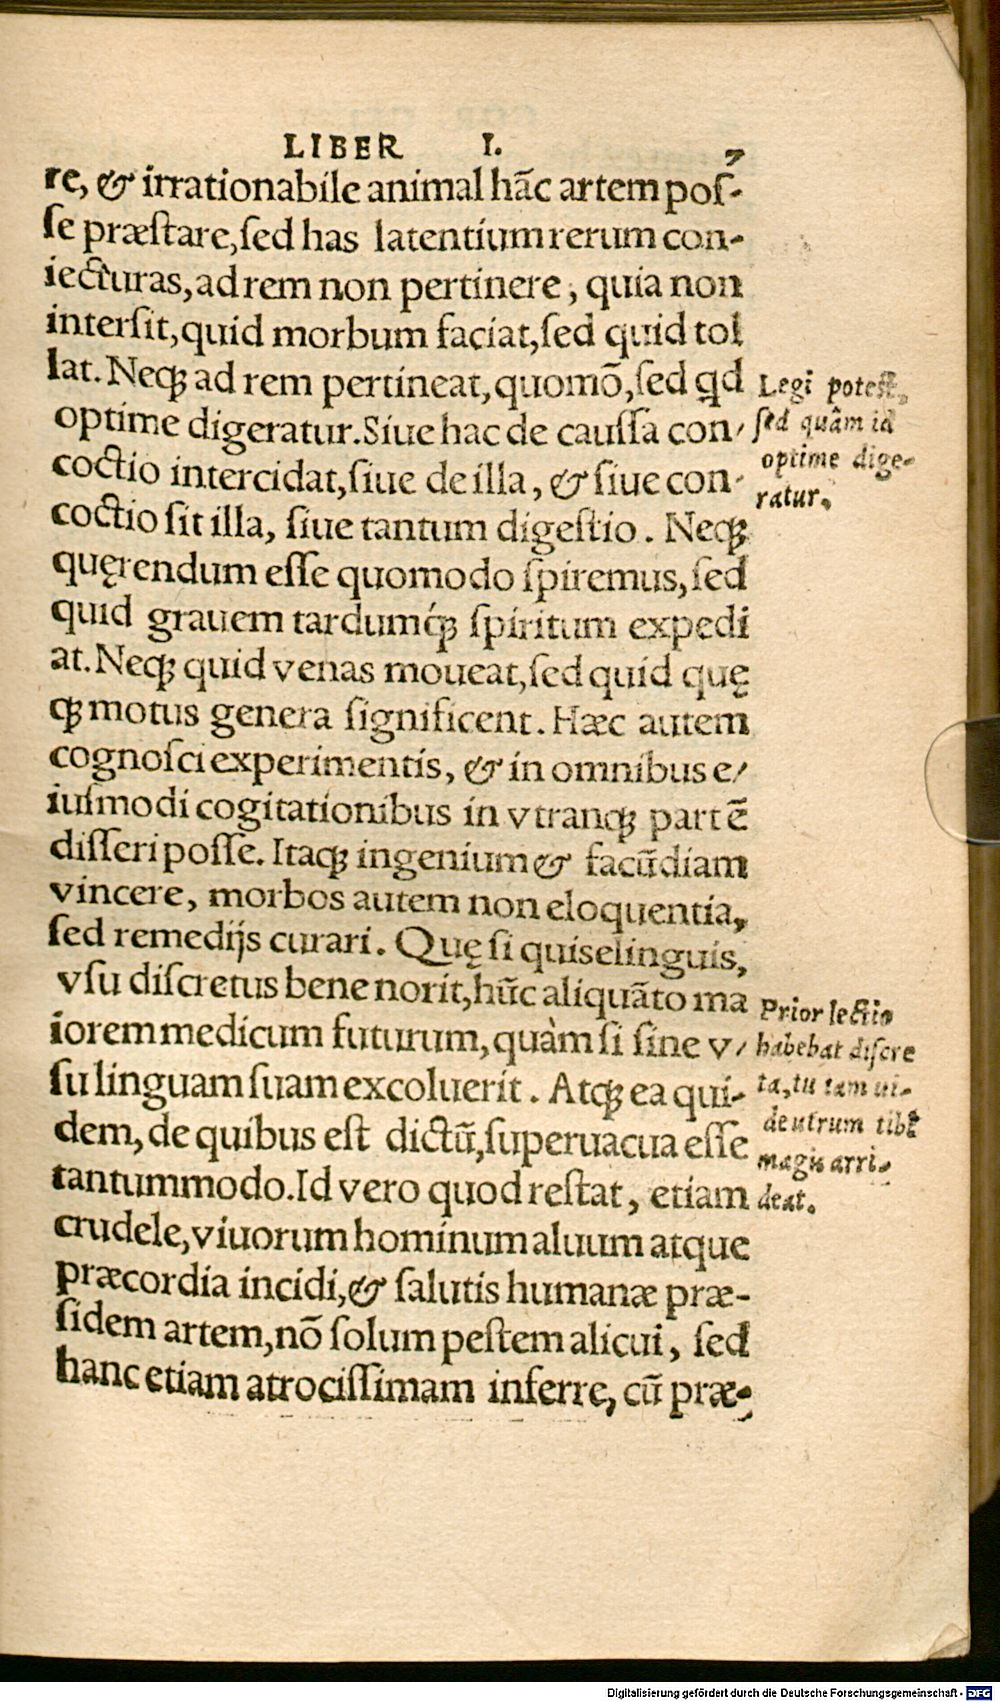 LIBER I. 7
re, & irrationabile animal hãc artem poſ-
ſe præſtare, ſed has latentium rerum con-
iecturas, ad rem non pertinere, quia non
interſit, quid morbum faciat, ſed quid tol
lat. Neqꝫ ad rem pertineat, quomõ, ſed qd
optime digeratur. Siue hac de cauſſa con-
coctio intercidat, ſiue de illa, & ſiue con-
coctio ſit illa, ſiue tantum digeſtio. Neqꝫ
quęrendum eſſe quomodo ſpiremus, ſed
quid grauem tardumqꝫ́ ſpiritum expedi
at. Neqꝫ quid venas moueat, ſed quid quę
qꝫ motus genera ſignificent. Hæc autem
cognoſci experimentis, & in omnibus e-
iuſmodi cogitationibus in vtranqꝫ partẽ
diſſeri poſſe. Itaqꝫ ingenium & facũdiam
vincere, morbos autem non eloquentia,
ſed remedijs curari. Quę ſi quis elinguis,
vſu diſcretus bene norit, hũc aliquãto ma
iorem medicum futurum, quàm ſi ſine v-
ſu linguam ſuam excoluerit. Atqꝫ ea qui-
dem, de quibus eſt dictũ, ſuperuacua eſſe
tantummodo. Id vero quod reſtat, etiam
crudele, viuorum hominum aluum atque
præcordia incidi, & ſalutis humanæ præ-
ſidem artem, nõ ſolum peſtem alicui, ſed
hanc etiam atrociſſimam inferre, cũ præ-
Legi poteſt,
ſed quâm id
optime dige-
ratur.
Prior lectio
habebat diſcre
ta, tu tam ui-
de utrum tibi
magis arri-
deat.
Digitalisierung gefördert durch die Deutsche Forschungsgemeinschaft - DFG